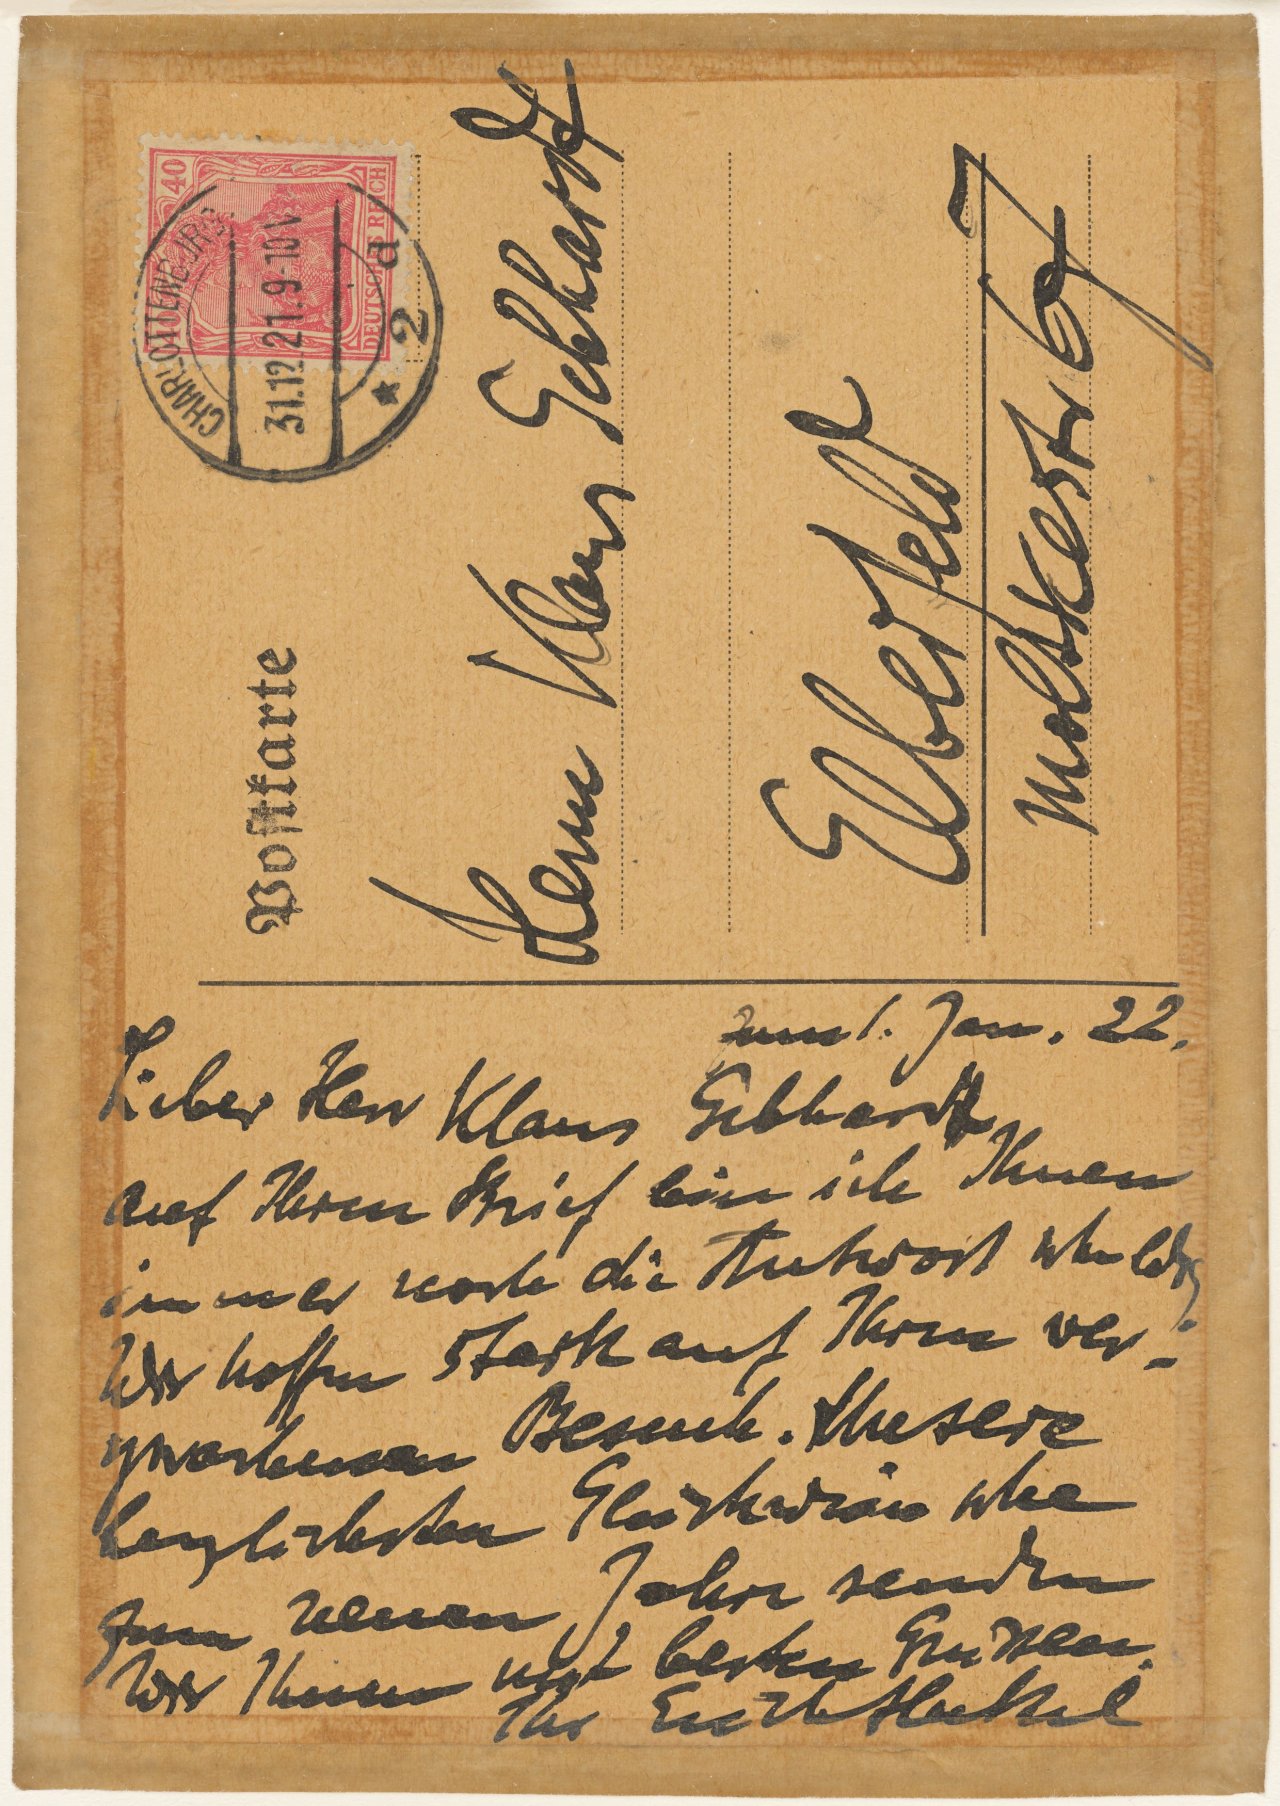 Postkarte
40
DEUTSCHES REICH
CHARLOTTENBURG
31.12.21.9-10V
* 2 a
Herrn Klaus Gebhardt
Elberfeld
Moltkestr 67
zum 1. Jan. 22.
Lieber Herr Klaus Gebhardt,
auf Ihren Brief bin ich Ihnen
immer noch die Antwort schuldig.
Wir hoffen stark auf Ihren ver-
sprochenen Besuch. Unsere
herzlichsten Glückwünsche
zum neuen Jahre senden
Wir Ihnen mit besten Grüssen.
Ihr Erich Heckel